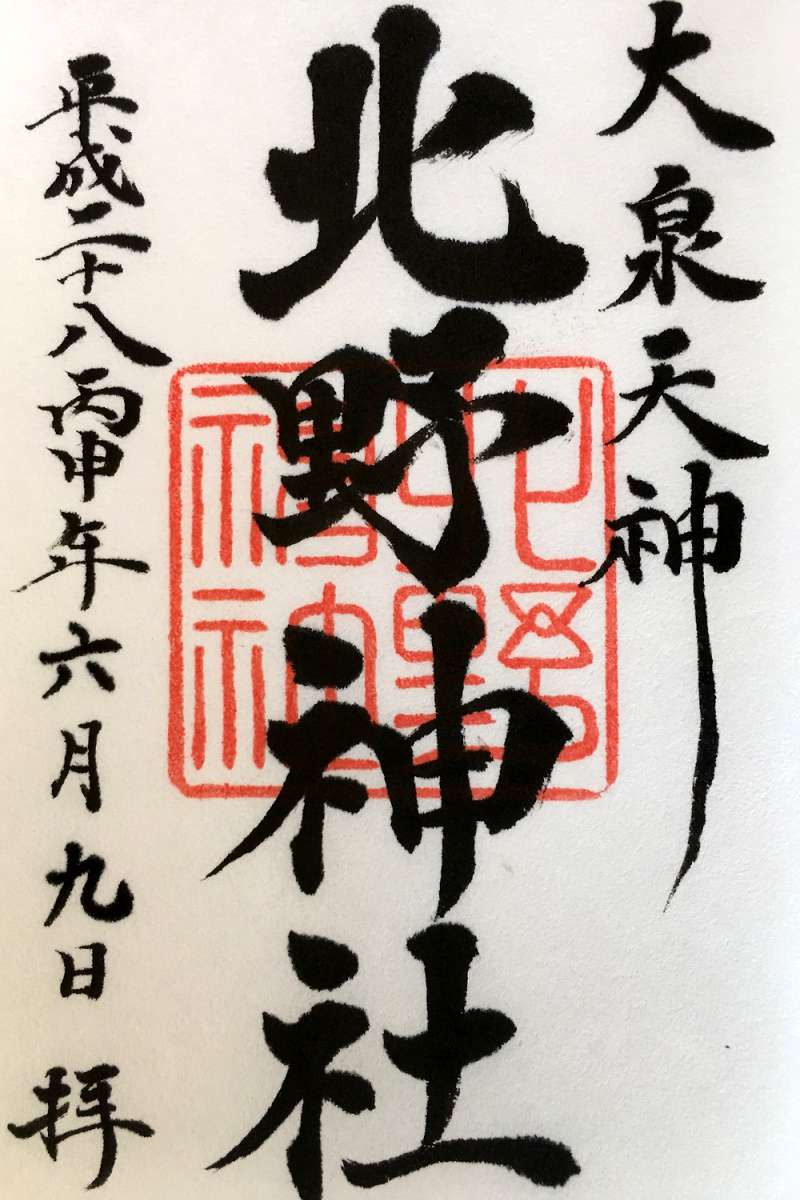 大泉天神
北野神社
平成二十八丙申年六月九日 拝